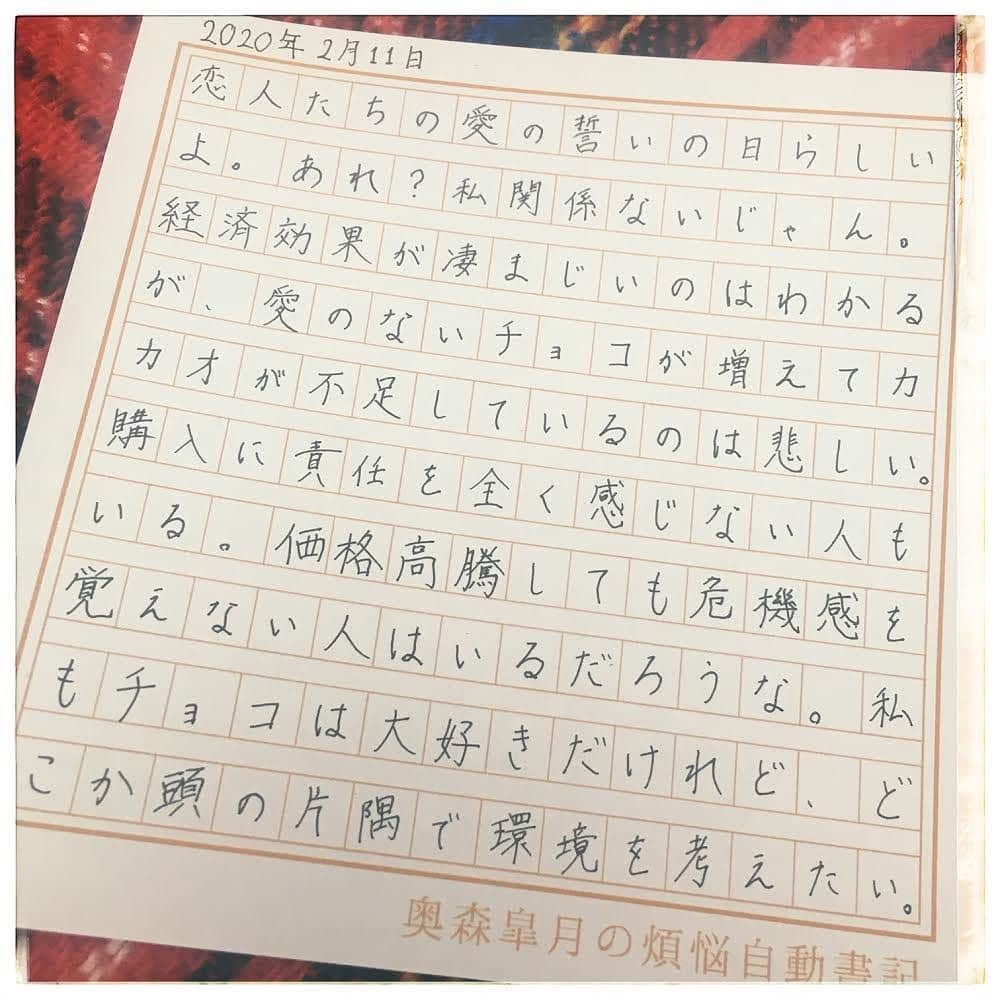 2020年2月11日
恋人たちの愛の誓いの日らしい
よ。あれ?私関係ないじゃん。
経済効果が凄まじいのはわかる
が、愛のないチョコが増えてカ
カオが不足しているのは悲しい。
購入に責任を全く感じない人も
いる。価格高騰しても危機感を
覚えない人はいるだろうな。私
もチョコは大好きだけれど、ど
こか頭の片隅で環境を考えたい。
奥森皐月の煩悩自動書記